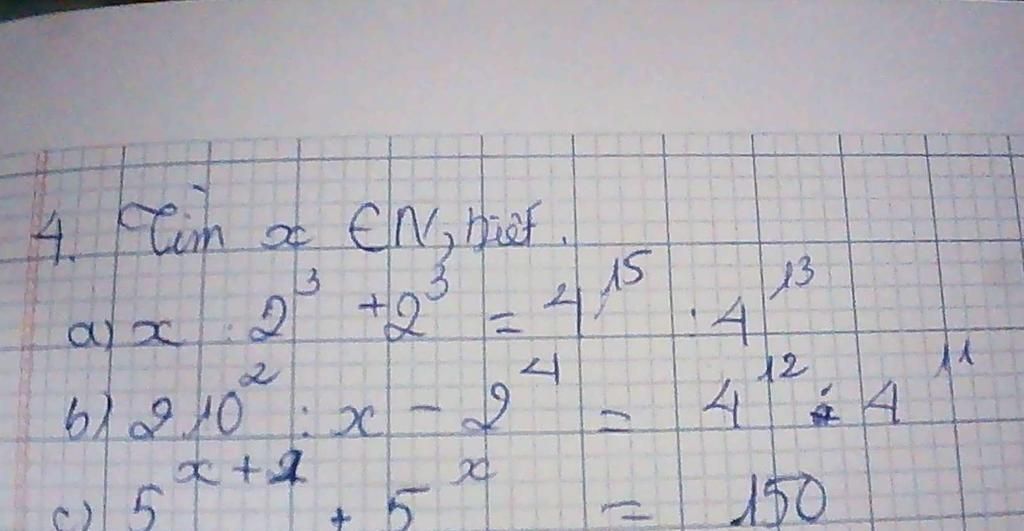 4. Tìm x ∈ N, biết.
a) x . 2³ + 2³ = 4¹⁵ . 4¹³
b) 2.10² : x - 2⁴ = 4¹² : 4¹¹
c) 5ˣ⁺¹ + 5ˣ = 150